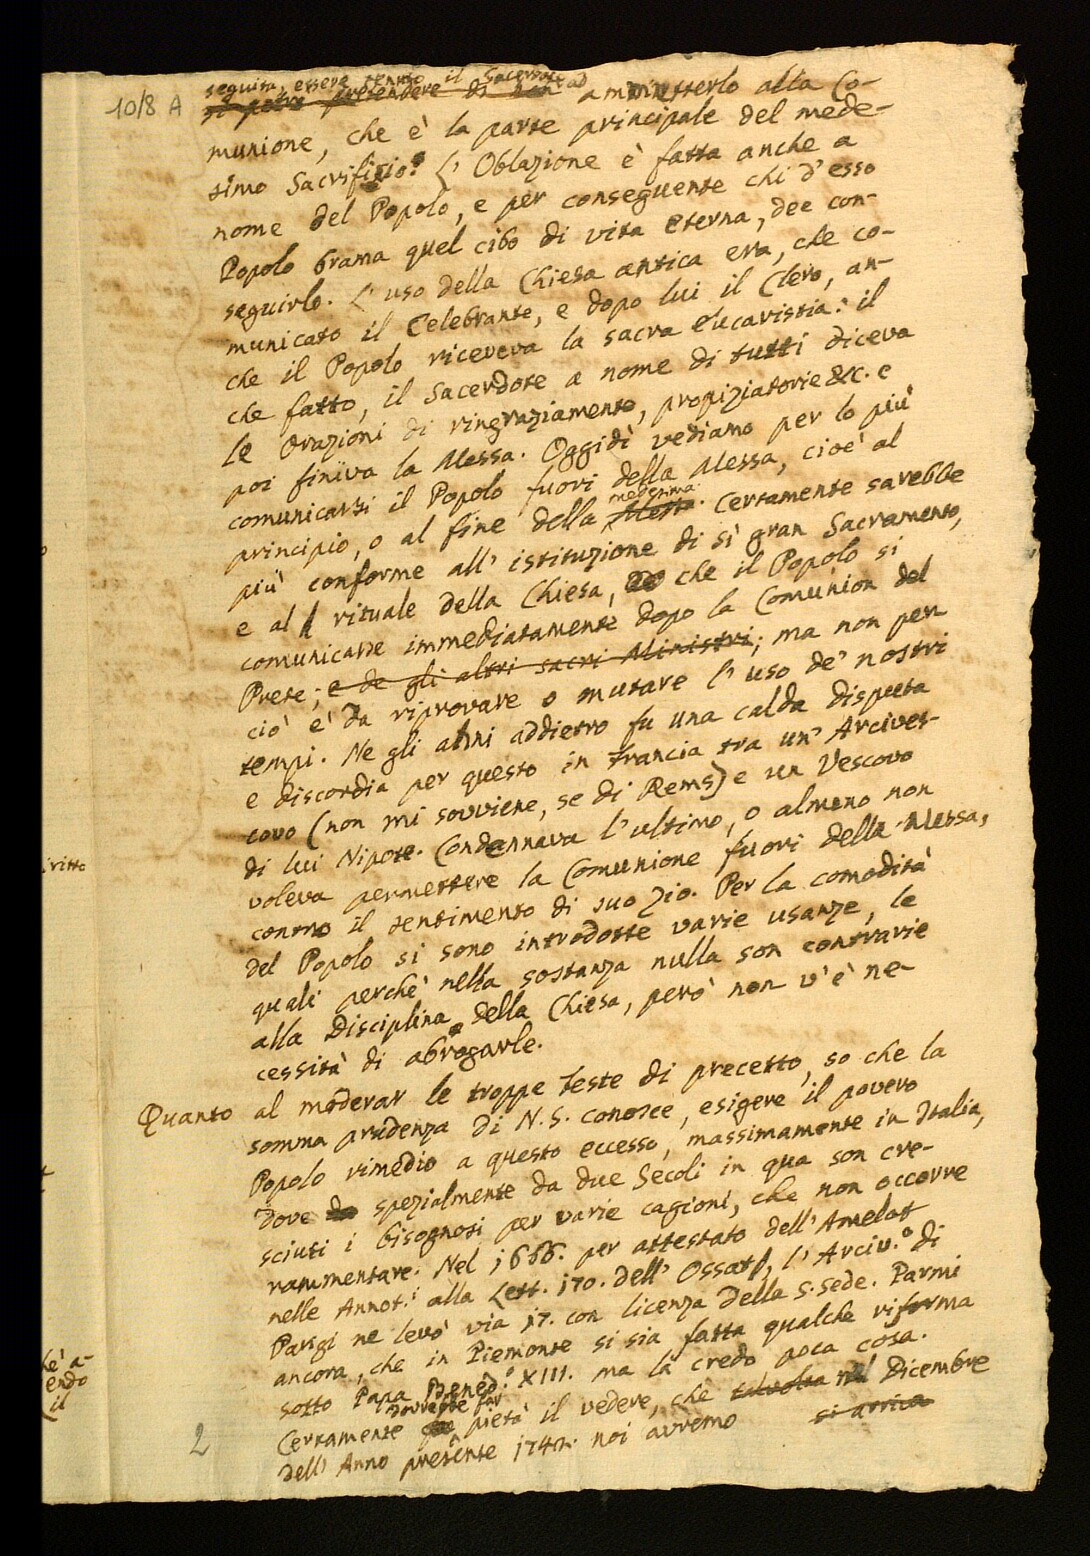 10/8 A
seguita, essere tenuto il Sacerdote ad
si potrà pretendere di non ammetterlo alla Co-
munione, che è la parte principale del mede-
simo Sacrifizio? L' Oblazione è fatta anche a
nome del Popolo, e per conseguente chi d' esso
Popolo brama quel cibo di vita eterna, dee con-
seguirlo. L' uso della Chiesa antica era, che co-
municato il Celebrante, e dopo lui il Clero, an-
che il Popolo riceveva la sacra Eucaristia: il
che fatto, il Sacerdote a nome di tutti diceva
le Orazioni di ringraziamento, propiziatorie &c. e
poi finiva la Messa. Oggidì vediamo per lo più
comunicarsi il Popolo fuori della Messa, cioè al
principio, o al fine della Messa medesima. Certamente sarebbe
più conforme all' istituzione di sì gran Sacramento,
e al rituale della Chiesa, che il Popolo si
comunicasse immediatamente dopo la Comunion del
Prete; e de gli altri sacri Ministri; ma non per
ciò è da riprovare o mutare l' uso de' nostri
tempi. Ne gli anni addietro fu una calda disputa
e discordia per questo in Francia tra un' Arcives-
covo (non mi sovviene, se di Rems) e un Vescovo
di lui Nipote. Condennava l' ultimo, o almeno non
voleva permettere la Comunione fuori della Messa,
contro il sentimento di suo Zio. Per la comodità
del Popolo si sono introdotte varie usanze, le
quali perchè nella sostanza nulla son contrarie
alla Disciplina della Chiesa, però non v' è ne-
cessità di abrogarle.
Quanto al moderar le troppe Feste di precetto, so che la
somma prudenza di N. S. conosce, esigere il povero
Popolo rimedio a questo eccesso, massimamente in Italia,
dove spezialmente da due Secoli in qua son cre-
sciuti i bisognosi per varie cagioni, che non occorre
rammentare. Nel 1666. per attestato dell' Amelot
nelle Annot.i alla Lett. 170. dell' Ossat, l' Arciv.o di
Parigi ne levò via 17. con licenza della S. Sede. Parmi
ancora, che in Piemonte si sia fatta qualche riforma
sotto Papa Bened.o XIII. ma la credo poca cosa.
Certamente dovrebbe far pietà il vedere, che talvolta nel Dicembre
dell' Anno presente 1742. noi avremo si arriva
2
ritto
hè a-
endo
il